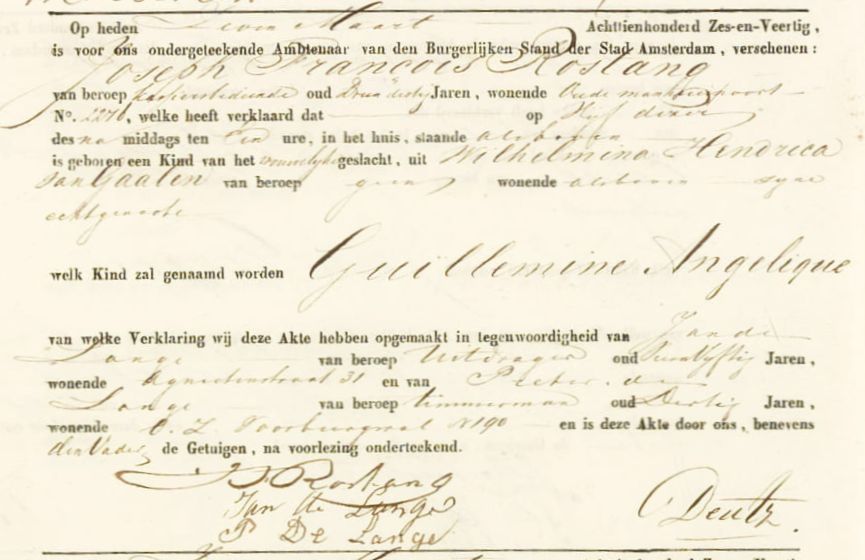 Op heden Zeven Maart Achttienhonderd Zes-en-Veertig,
is voor ons ondergeteekende Ambtenaar van den Burgerlijken Stand der Stad Amsterdam, verschenen:
Joseph Francois Rostang
van beroep oud Drie dertig Jaren, wonende Oude
No. 227, welke heeft verklaard dat op Vijf dezer
des na middags ten Een ure, in het huis, staande alsboven
is geboren een Kind van het vrouwelijk geslacht, uit Wilhelmina Hendrica
van Gaalen van beroep geen wonende alsboven zyne
echtgenoote
welk Kind zal genaamd worden Guillemine Angelique
van welke Verklaring wij deze Akte hebben opgemaakt in tegenwoordigheid van Jan de
Lange van beroep Uitdrager oud Vyftig Jaren,
wonende Agnietenstraat 31 en van Pieter de
Lange van beroep timmerman oud Dertig Jaren,
wonende O. Z. Voorburgwal N 190 en is deze Akte door ons, benevens
den Vader de Getuigen, na voorlezing onderteekend.
J F Rostang
Jan de Lange
P De Lange
Deutz.